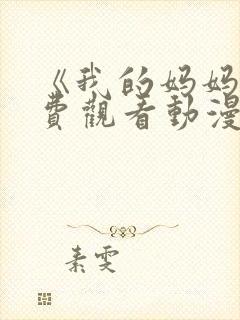 《我的妈妈
费觀看動漫
素雯